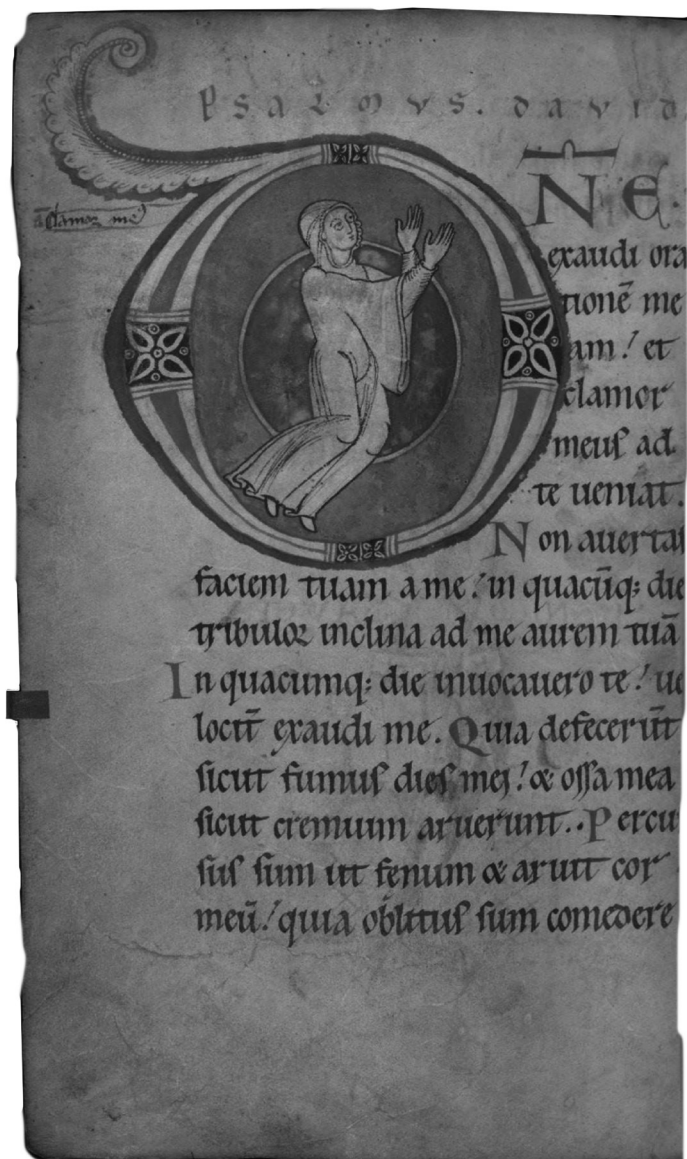 PSALMVS. DAVID
clamor me
DNE.
exaudi ora
tionē me
am! et
clamor
meus ad
te ueniat.
Non auertas
faciem tuam a me! in quacūq; die
tribulor inclina ad me aurem tuā
In quacumq; die inuocauero te! ue
locit̄ exaudi me. Quia defecer̄t
sicut fumus dies mei! & ossa mea
sicut cremium aruerunt. Percu
sus sum ut fenum & aruit cor
meū! quia oblitus sum comedere